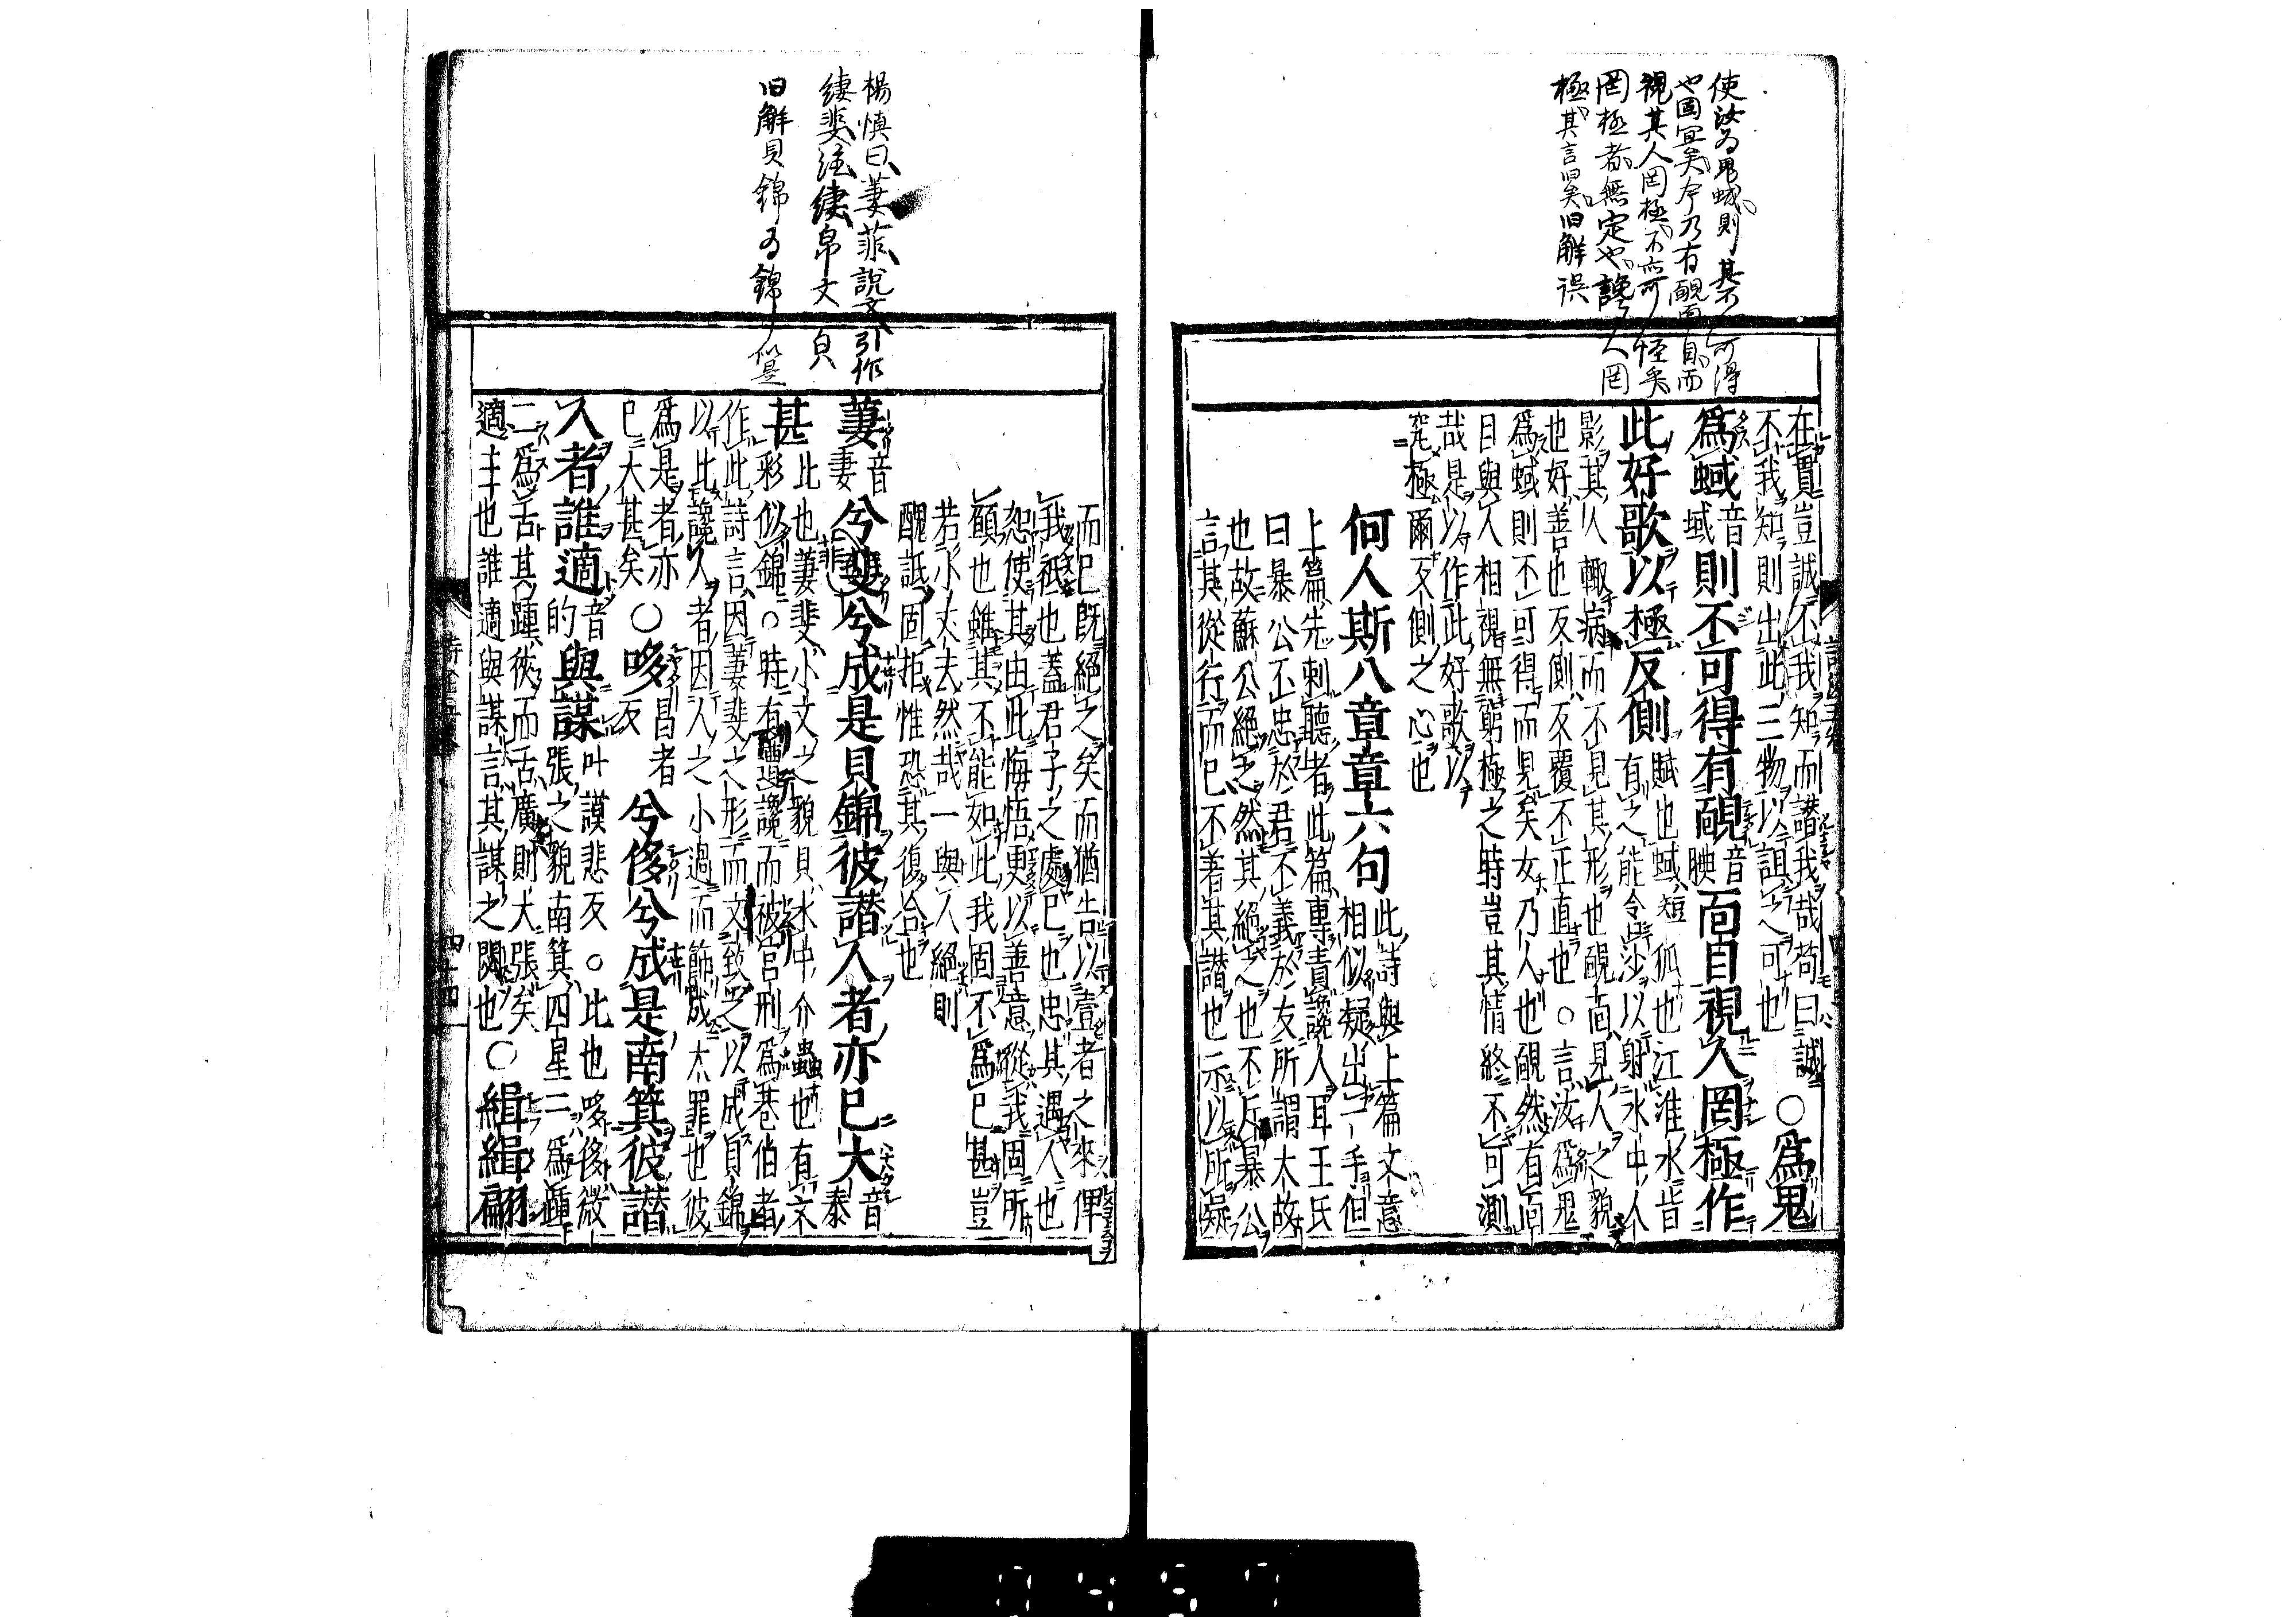 使汝為鬼蜮則其不可得
也固宜矣今乃有靦面目而
視其人罔極不亦可怪矣
罔極者無定也讒人罔
極其言旧矣旧解誤
在貫豈誠不我知而譖我哉苟曰誠
不我知則出此三物以詛之可也○為鬼
為蜮音域則不可得有靦音腆面目視人罔極作
此好歌以極反側賦也蜮短狐也江淮水皆
有之能含沙以射水中人
影其人輒病而不見其形也靦面見人之貌
也好善也反側反覆不正直也○言汝為鬼
為蜮則不可得而見矣女乃人也靦然有面
目與人相視無窮極之時豈其情終不可測
哉是以作此好歌以
究極爾反側之心也
何人斯八章章六句此詩與上篇文意
相似疑出一手但
上篇先刺聽者此篇專責讒人耳王氏
曰暴公不忠於君不義於友所謂大故
也故蘇公絕之然其絕之也不斥暴公
言其從行而已不著其譖也示以所疑
而已既絕之矣而猶告以壹者之來俾
我祇也蓋君子之處已也忠其遇人也
恕使其由此悔悟更以善意從我固所
願也雖其不能如此我固不為已甚豈
若小丈夫然哉一與人絕則
醜詆固拒惟恐其復合也
萋音妻兮斐兮成是貝錦彼譖人者亦已大音泰
甚比也萋斐小文之貌貝水中介蟲也有文
彩似錦○時有遭讒而被宮刑為巷伯者
作此詩言因萋斐之形而文致之以成貝錦
以比讒人者因人之小過而飾成大罪也彼
為是者亦
已大甚矣○哆昌者反兮侈兮成是南箕彼譖
人者誰適音的與謀叶謨悲反○比也哆侈微
張之貌南箕四星二為踵
二為舌其踵狹而舌廣則大張矣
適主也誰適與謀言其謀之閟也○緝緝翩
楊慎曰萋菲說文引作
縷斐注縷帛文貝
旧解貝錦為錦人似是
四十四